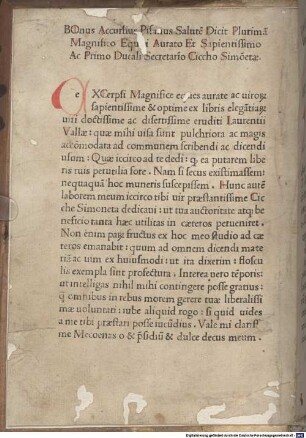 BOnus Accursius Pisanus Salutē Dicit Plurimā
Magnifico Equiti Aurato Et Sapientissimo
Ac Primo Ducali Secretario Ciccho Simōetæ.
EXCerpsi Magnifice eques aurate ac uirorū
sapientissime & optime ex libris elegātiaꝝ
uiri doctissime ac disertissime eruditi Laurentii
Vallæ: quæ mihi uisa sunt pulchriora ac magis
accōmodata ad communem scribendi ac dicendi
usum: Quæ iccirco ad te dedi: q ea putarem libe
ris tuis perutilia fore. Nam si secus existimassem:
nequaquā hoc muneris suscepissem. Hunc autē
laborem meum iccirco tibi uir præstantissime Cic
che Simoneta dedicaui: ut tua auctoritate atqꝫ be
neficio tanta hæc utilitas in cæteros perueniret.
Non enim paꝝ fructus ex hoc meo studio ad cæ
teros emanabit: quum ad omnem dicendi mate
riā ac uim ex huiusmodi: ut ita dixerim: flosculis
exempla sint profectura. Interea uero tēporis:
ut intelligas nihil mihi contingere posse gratius:
q̄ omnibus in rebus morem gerere tuæ liberalissi
mæ uoluntati: iube aliquid rogo: si quid uides
a me tibi præstari posse iucūdius. Vale mi clariss
ime Mecœnas o & p̄sidiū & dulce decus meum.
Digitalisierung gefördert durch die Deutsche Forschungsgemeinschaft